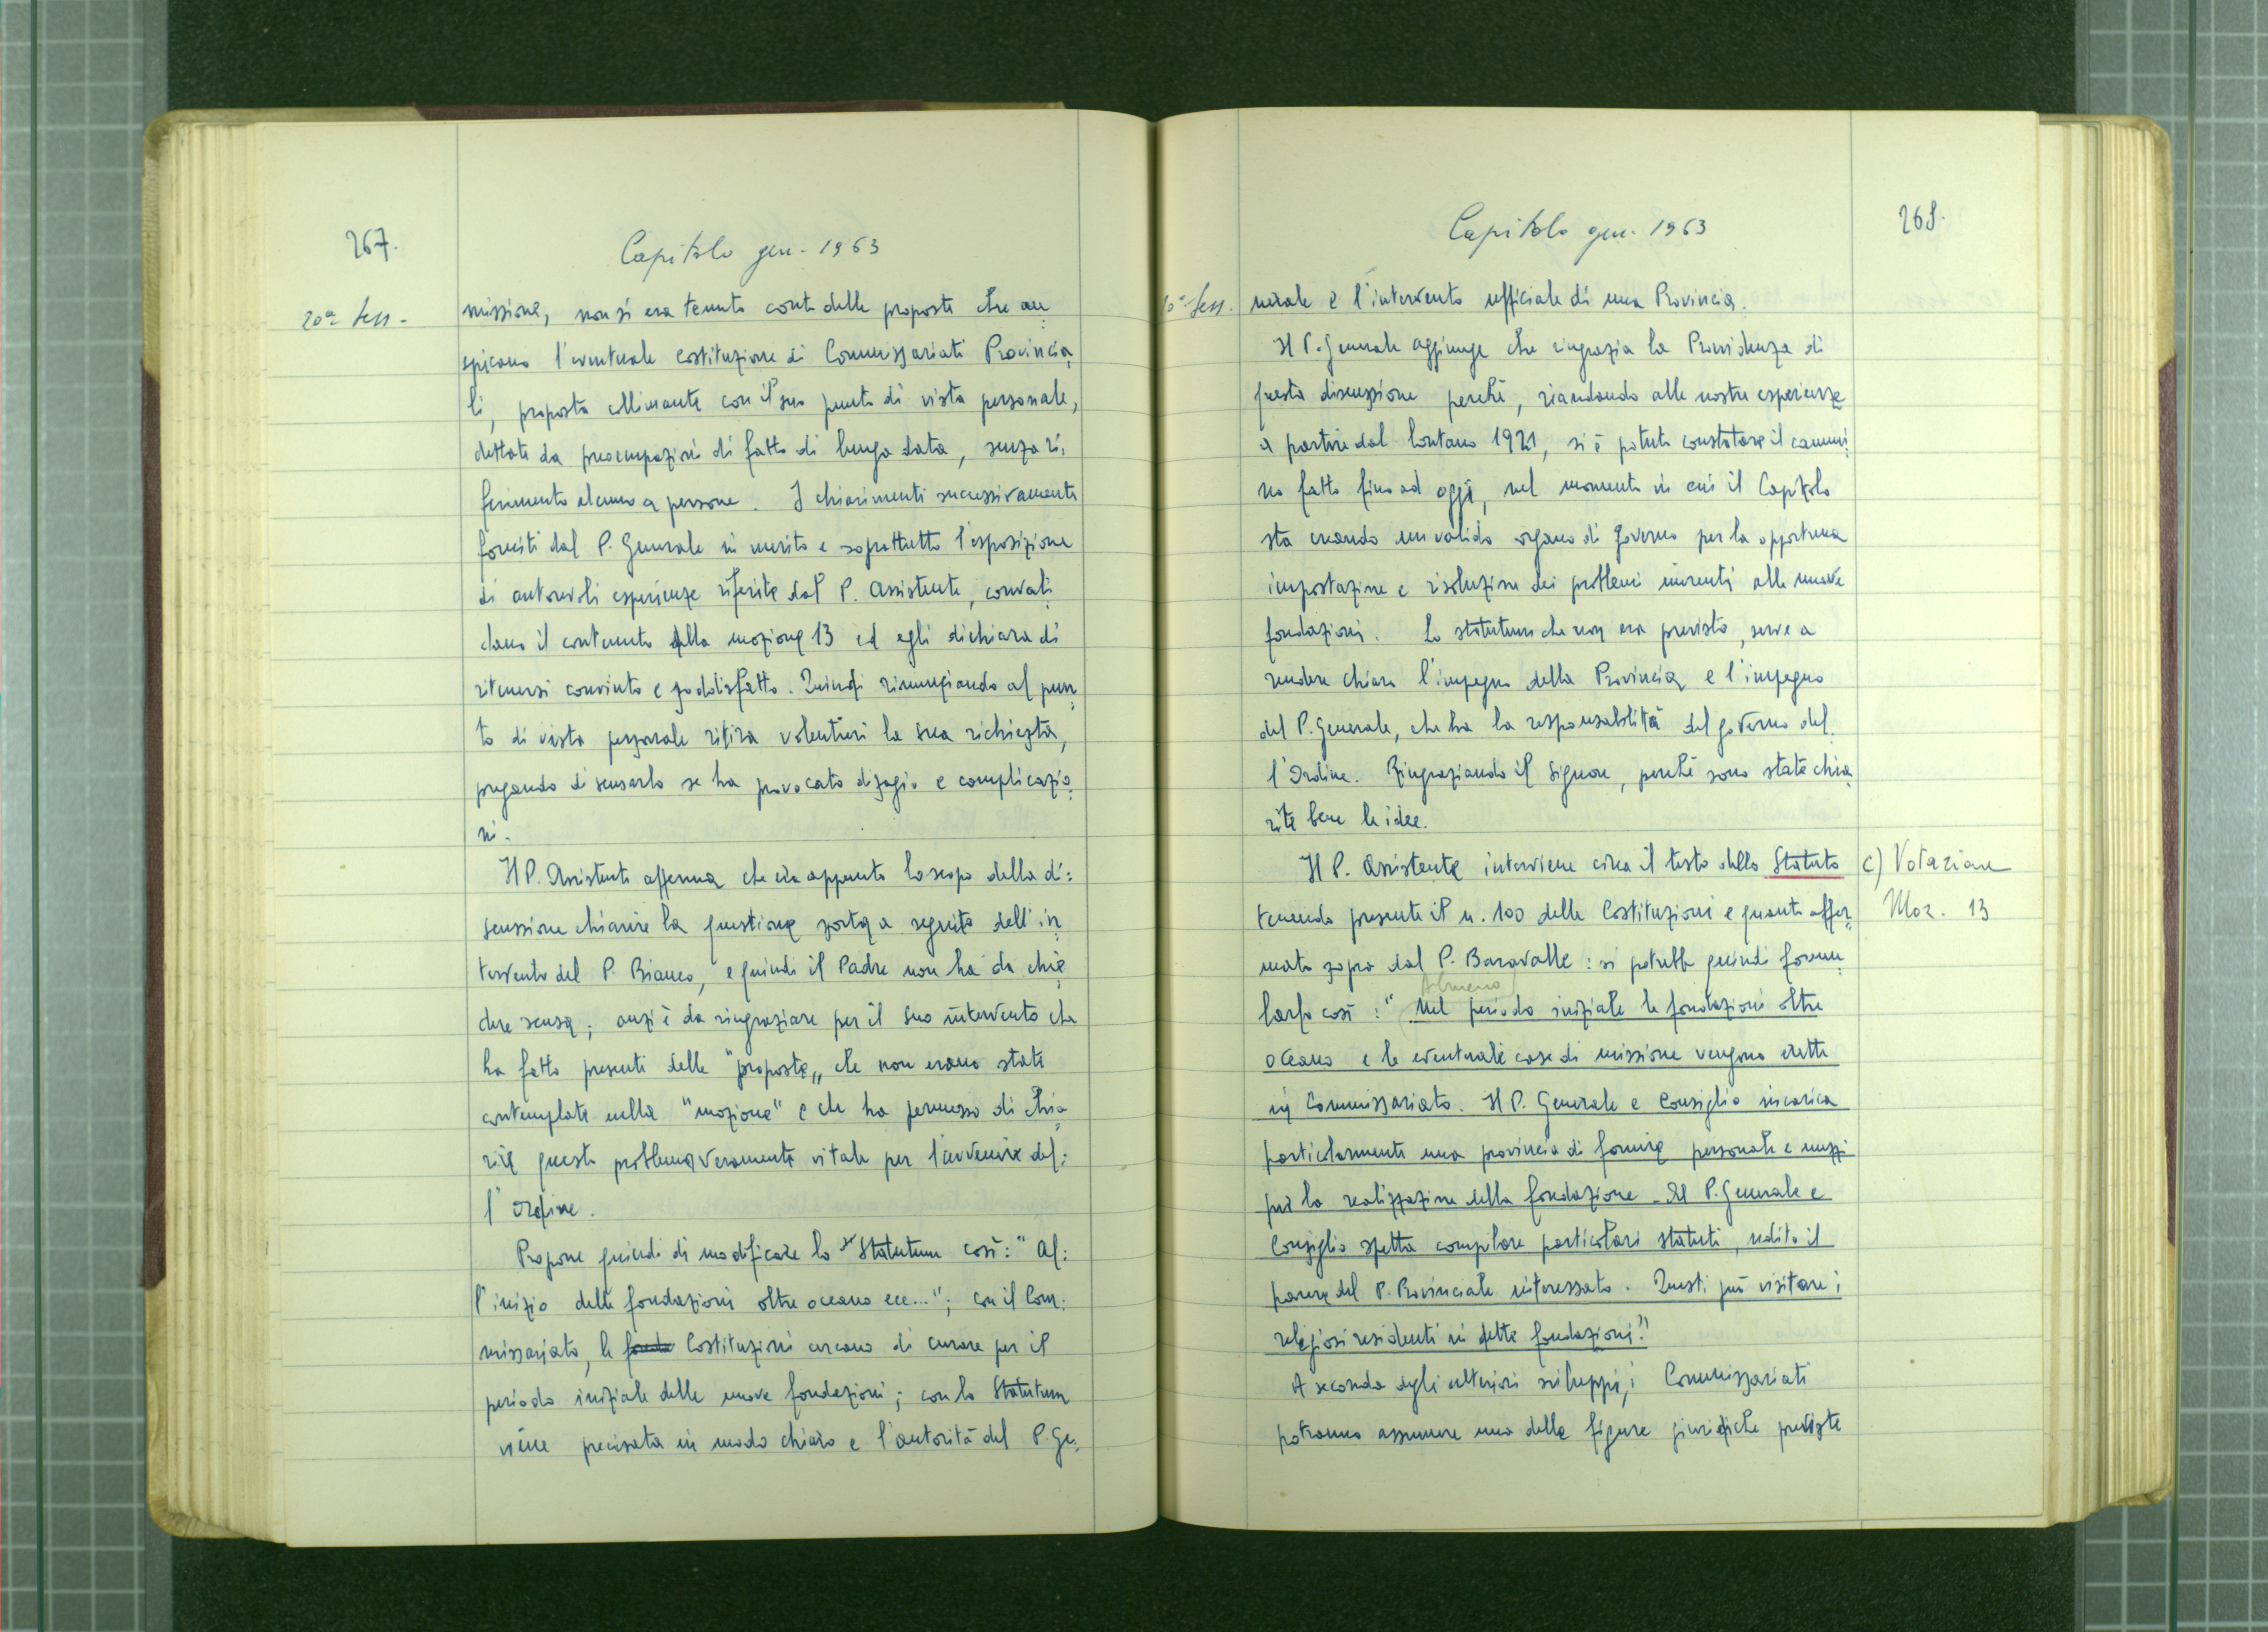 267.
Capitolo gen. 1963
20a Sess.
missione, non si era tenuto conto delle proposte che au=
spicano l'eventuale costituzione di Commissariati Provincia=
li, proposta collimante con il suo punto di vista personale,
dettate da preoccupazioni di fatto di lunga data, senza ri=
ferimento alcuno a persone. I chiarimenti successivamente
forniti dal P. Generale in merito e soprattutto l'esposizione
di autorevoli esperienze riferite dal P. Assistente, convali=
dano il contenuto della mozione 13 ed egli dichiara di
ritenersi convinto e soddisfatto. Quindi rinunziando al pun=
to di vista personale ritira volentieri la sua richiesta,
pregando di scusarlo se ha provocato disagio e complicazio=
ni.
Il P. Assistente afferma che era appunto lo scopo della di=
scussione chiarire la questione sorta a seguito dell'in=
tervento del P. Bianco, e quindi il Padre non ha da chie=
dere scusa; anzi è da ringraziare per il suo intervento che
ha fatto presenti delle "proposte„ che non erano state
contemplate nella "mozione" e che ha permesso di chia=
rire questo problema veramente vitale per l'avvenire del=
l'Ordine.
Propone quindi di modificare lo Statutum così: "Al=
l'inizio delle fondazioni oltre oceano ecc..."; con il Com=
missariato, le Costituzioni cercano di curare per il
periodo iniziale delle nuove fondazioni; con lo Statutum
viene precisata in modo chiaro e l'autorità del P. Ge=
Capitolo gen. 1963
268.
20a Sess.
nerale e l'intervento ufficiale di una Provincia.
Il P. Generale aggiunge che ringrazia la Provvidenza di
questa discussione perchè, riandando alle nostre esperienze
a partire dal lontano 1921, si è potuto constatare il cammi=
no fatto fino ad oggi, nel momento in cui il Capitolo
sta creando un valido organo di Governo per la opportuna
impostazione e risoluzione dei problemi inerenti alle nuove
fondazioni. Lo statutum che non era previsto, serve a
rendere chiaro l'impegno della Provincia e l'impegno
del P. Generale, che ha la responsabilità del governo del=
l'Ordine. Ringraziando il Signore, perchè sono state chia=
rite bene le idee.
Il P. Assistente interviene circa il testo dello Statuto
c) Votazione
Moz. 13
tenendo presente il n. 100 delle Costituzioni e quanto affer=
mato sopra dal P. Baravalle: si potrebbe quindi formu=
Almeno
larlo così: "Nel periodo iniziale le fondazioni oltre
oceano e le eventuali case di missione vengono erette
in Commissariato. Il P. Generale e Consiglio incarica
particolarmente una provincia di fornire personale e mezzi
per la realizzazione della fondazione. Al P. Generale e
Consiglio spetta compilare particolari statuti, udito il
parere del P. Provinciale interessato. Questi può visitare i
religiosi residenti in dette fondazioni."
A seconda degli ulteriori sviluppi, i Commissariati
potranno assumere una delle figure giuridiche previste